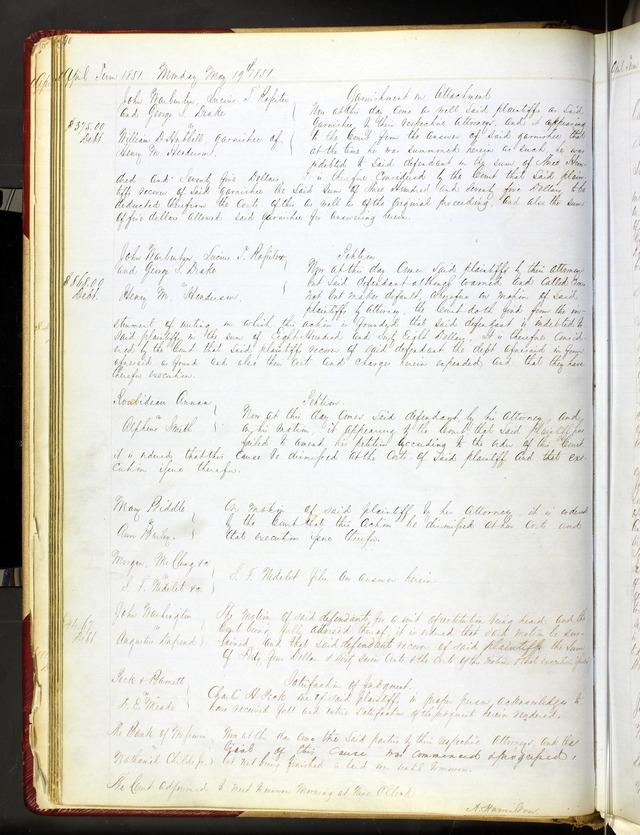 April Term 1851. Monday May 19th 1851
John Warburton, Lucius T. Rossiter Garnishment on Attachment
and George S. Drake Now at this day come as well said plaintiffs as said
$375.00 vs garnishee by their respective Attorneys and it appearing
Debt. William D. Hubbell, garnishee of to the Court from the answer of said garnishee that
Henry M. Henderson. at the time he was summoned herein as such, he was
indebted to said defendant in the sum of Three Hun-
dred and Seventy five Dollars, It is therefore considered by the Court that said plain-
tiffs recover of said garnishee the said sum of Three Hundred and Seventy five Dollars, to be
deducted therefrom the Costs of this as well as of the original proceeding, and also the sum
of five dollars allowed said garnishee for answering herein.
John Warburton, Lucius T. Rossiter Petition
and George S. Drake Now at this day come said plaintiffs by their attorney
$868.00 vs but said defendant although warned and called comes
Debt. Henry M. Henderson. not but makes default, wherefore on motion of said
plaintiffs by attorney, the Court doth find from the in-
strument of writing on which this action is founded, that said defendant is indebted to
said plaintiffs in the sum of Eight Hundred and Sixty Eight Dollars. It is therefore consid-
ered by the Court that said plaintiffs recover of said defendant the debt aforesaid in form
aforesaid as found and also their costs and charges herein expended, and that they have
therefor execution.
Roubideau Annan Petition.
vs Now at this day comes said defendant, by his Attorney, and
Orpheus Smith on his motion, it appearing to the Court that said plaintiff has
failed to amend his petition according to the order of this Court
it is ordered that this Cause be dismissed at the Costs of said plaintiff and that exe-
cution issue therefor.
Mary Biddle On motion of said plaintiff, by her Attorney, it is ordered
vs by the Court that this action be dismissed at her Costs and
Ann that execution issue therefor.
Morgan, McClung &co
vs S. F. files an answer herein
S. F. &co
John Washington The Motion of said defendant, for a writ of restitution being heard and the
vs Court being fully advised thereof, it is ordered that said motion be sus-
Debt. Augustus tained, and that said defendant recover of said plaintiff the Sum
of Dollars & Cents & the Costs of this motion & that execution issue
Peck & Barnett Satisfaction of Judgment.
vs Charles H. Peck one of said plaintiffs, in proper person, acknowledges to
S. E. Meade have received full and entire satisfaction of the judgment herein rendered.
The Bank of Missouri Now at this day come the said parties by their respective Attorneys, and the
vs trial of this Cause was commenced & progressed,
Nathaniel Childs jr. but not being finished is laid over until tomorrow.
The Court adjourned to meet tomorrow Morning at Nine O'Clock
A. Hamilton